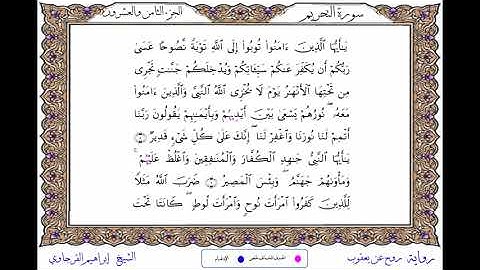 سورة التحريم
الجزء الثامن والعشرون
يَٰٓأَيُّهَا ٱلَّذِينَ ءَامَنُواْ تُوبُوٓاْ إِلَى ٱللَّهِ تَوْبَةً نَّصُوحًا عَسَىٰ
رَبُّكُمْ أَن يُكَفِّرَ عَنكُمْ سَيِّـَٔاتِكُمْ وَيُدْخِلَكُمْ جَنَّٰتٍ تَجْرِى
مِن تَحْتِهَا ٱلْأَنْهَٰرُ يَوْمَ لَا يُخْزِى ٱللَّهُ ٱلنَّبِىَّ وَٱلَّذِينَ ءَامَنُواْ
مَعَهُۥ نُورُهُمْ يَسْعَىٰ بَيْنَ أَيْدِيهِمْ وَبِأَيْمَٰنِهِمْ يَقُولُونَ رَبَّنَآ
أَتْمِمْ لَنَا نُورَنَا وَٱغْفِرْ لَنَآ إِنَّكَ عَلَىٰ كُلِّ شَىْءٍ قَدِيرٌ ۝٨
يَٰٓأَيُّهَا ٱلنَّبِىُّ جَٰهِدِ ٱلْكُفَّارَ وَٱلْمُنَٰفِقِينَ وَٱغْلُظْ عَلَيْهُمْ
وَمَأْوَىٰهُمْ جَهَنَّمُ وَبِئْسَ ٱلْمَصِيرُ ۝٩ ضَرَبَ ٱللَّهُ مَثَلًا
لِّلَّذِينَ كَفَرُواْ ٱمْرَأَتَ نُوحٍ وَٱمْرَأَتَ لُوطٍ كَانَتَا تَحْتَ
رواية روح عن يعقوب
الإدغام
الشيخ إبراهيم الفرجاوي